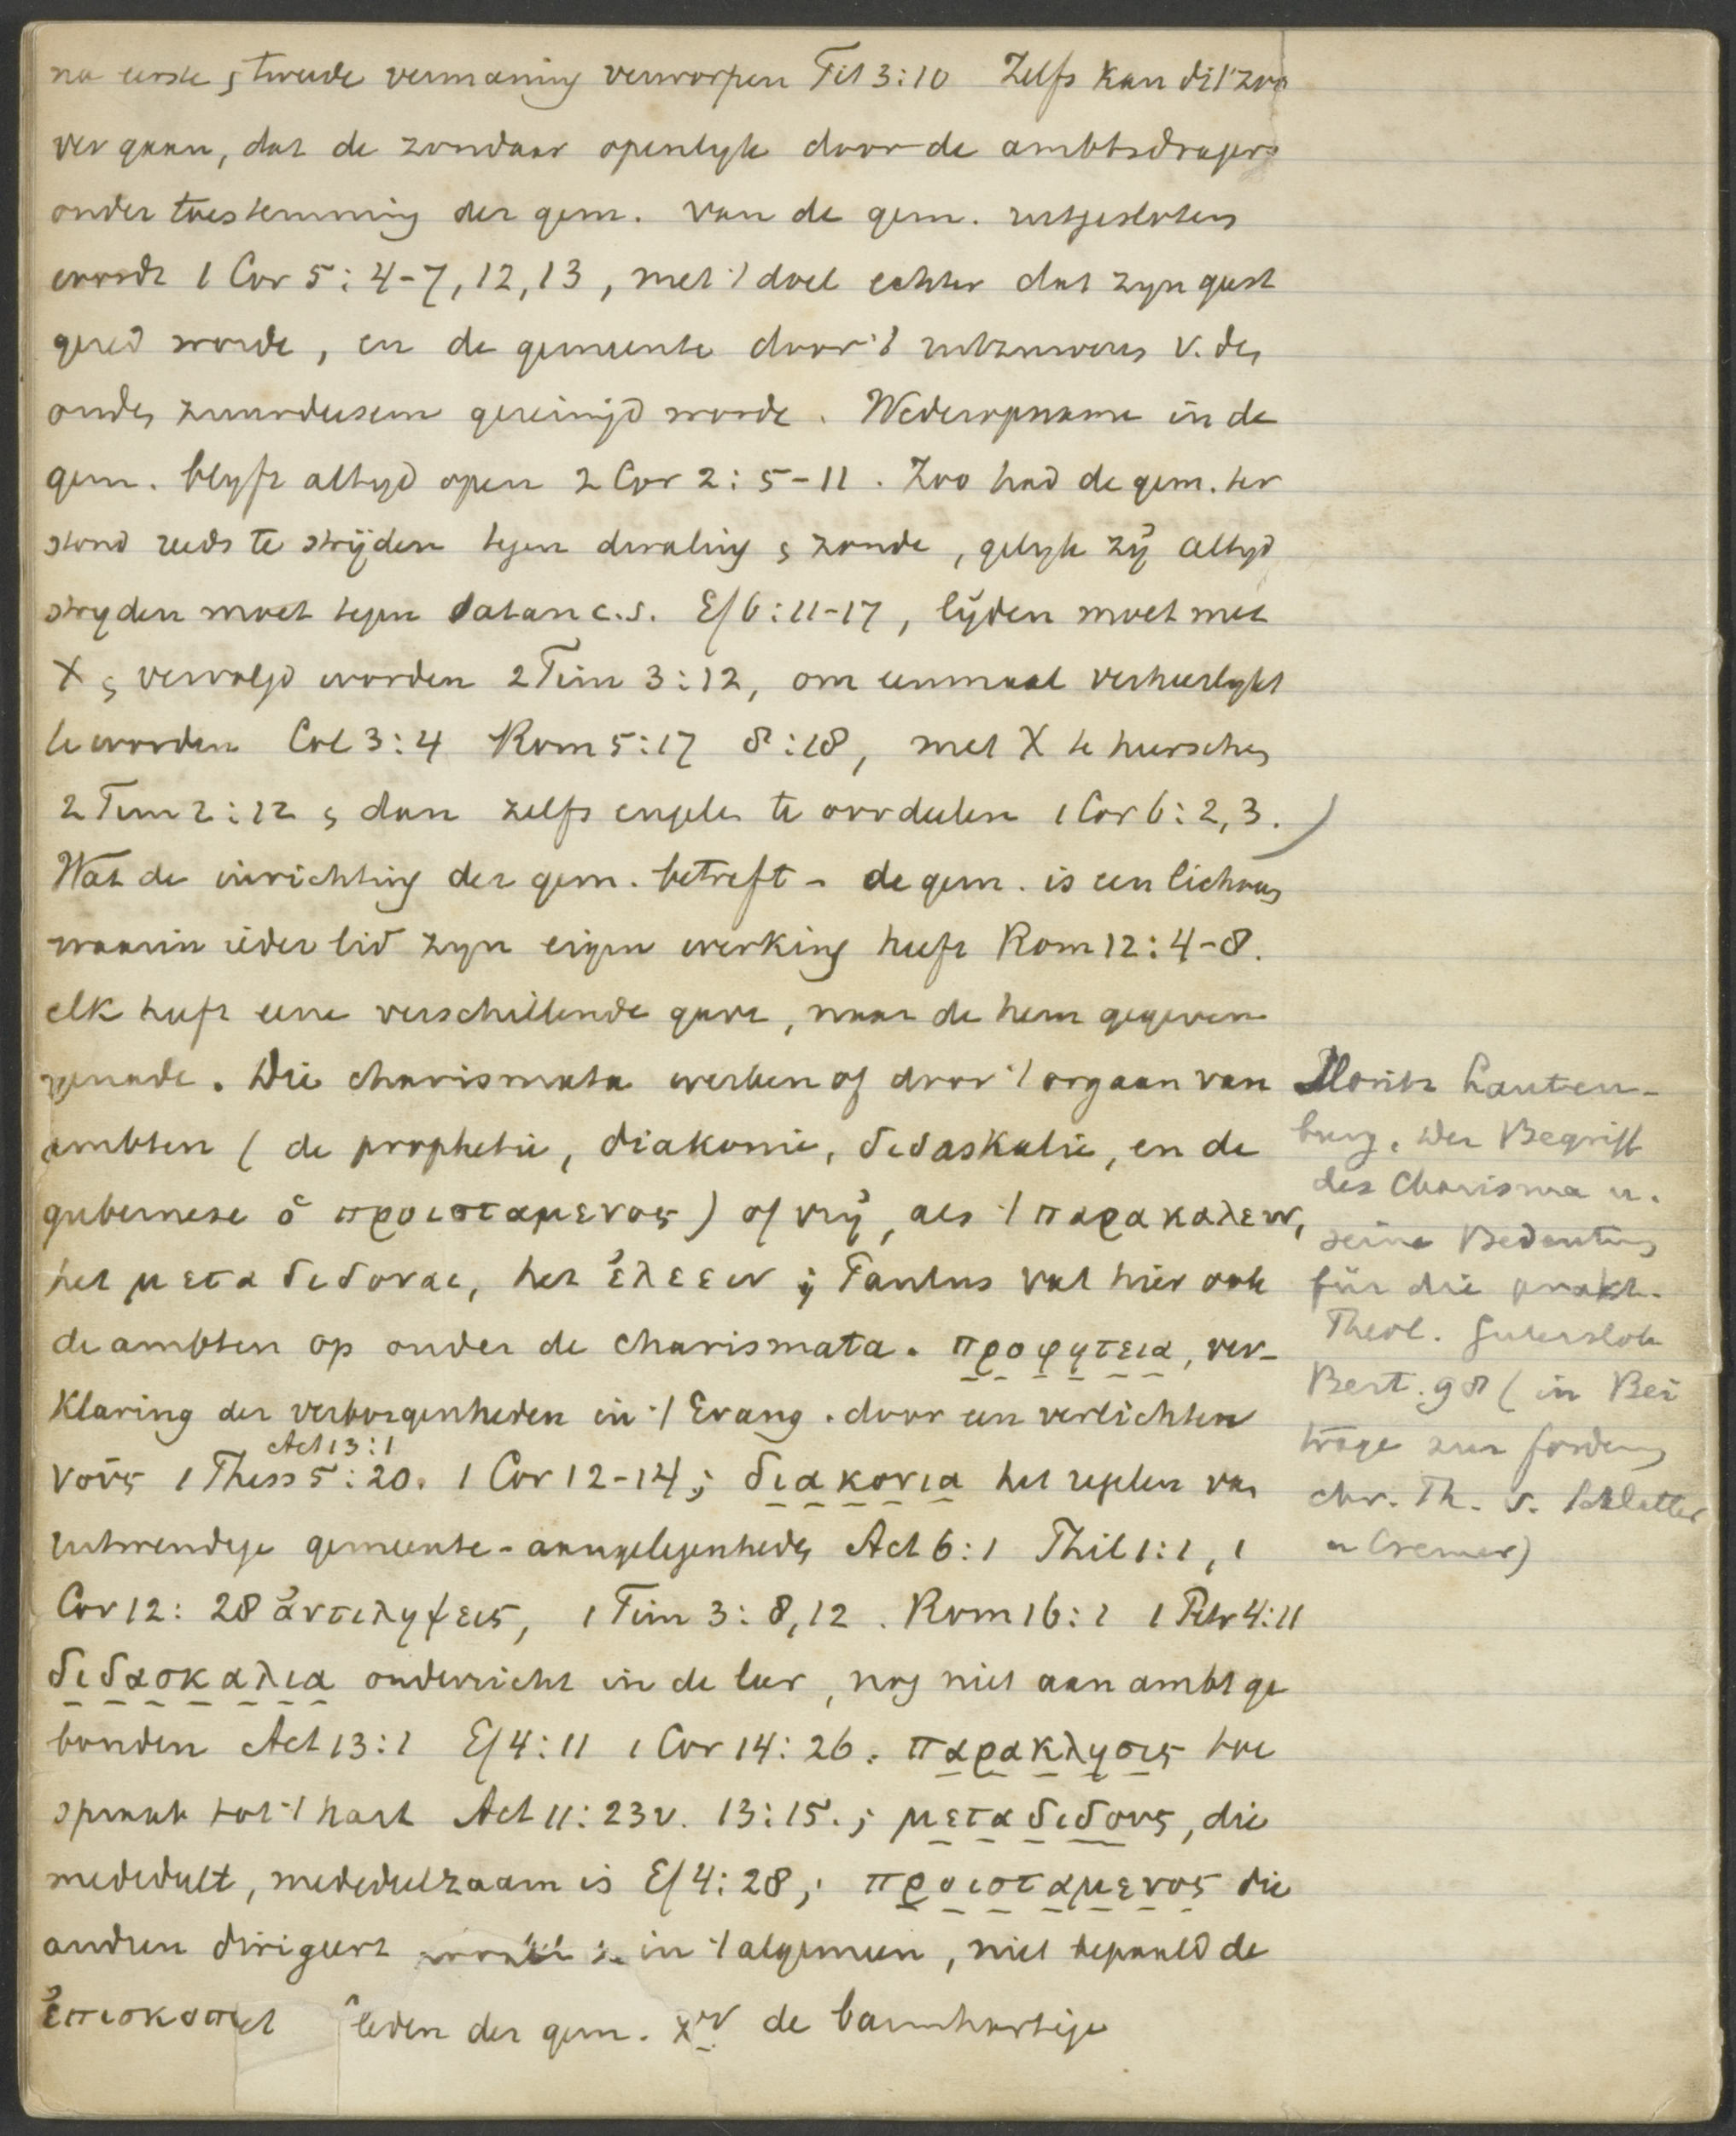 na eerste & tweede vermaning verworpen Tit 3:10 Zelfs kan dit zoo
ver gaan, dat de zondaar openlyk door de ambtsdragers
onder toestemming der gem. van de gem. uitgesloten
wordt 1 Cor 5:4-7, 12, 13, met 't doel echter dat zyn geest
gered worde, en de gemeente door 't uitzuiveren v. den
ouden zuurdeesem gereinigd worde. Wederopname in de
gem. blyft altyd open 2 Cor 2:5-11. Zoo had de gem. ter
stond reeds te strijden tegen dwaling & zonde, gelyk zij altyd
stryden moet tegen Satan c.s. Ef 6:11-17, lijden moet met
X & vervolgd worden 2 Tim 3:12, om eenmaal verheerlykt
te worden Col 3:4 Rom 5:17 8:18, met X te heerschen
2 Tim 2:12 & dan zelfs engelen te oordeelen 1 Cor 6:2,3.)
Wat de inrichting der gem. betreft - de gem. is een lichaam
waarin ieder lid zyn eigen werking heeft Rom 12:4-8.
elk heeft eene verschillende gave, naar de hem gegeven
genade. Die charismata werken of door 't orgaan van
ambten (de prophetie, diakonie, didaskalie, en de
gubernese ὁ προισταμενος) of vrij, als 't παρακαλειν,
het μεταδιδοναι, het ἐλεειν; Paulus vat hier ook
de ambten op onder de charismata. προφητεια, ver-
klaring der verborgenheden in 't Evang. door een verlichten
Act 13:1
νοῦς 1 Thess 5:20. 1 Cor 12-14; διακονια het regelen van
uitwendige gemeente-aangelegenheden Act 6:1 Phil 1:1, 1
Cor 12:28 ἀντιληψεις, 1 Tim 3:8,12. Rom 16:1 1 Petr 4:11
διδασκαλια onderricht in de leer, nog niet aan ambt ge
bonden Act 13:1 Ef 4:11 1 Cor 14:26. παρακλησις toe
spraak tot 't hart Act 11:23v. 13:15.; μεταδιδους, die
mededeelt, mededeelzaam is Ef 4:28; προισταμενος die
andren dirigeert in 't algemeen, niet bepaald de
ἐπισκοποι leden der gem. de barmhartige
Moritz Lauten-
burg, Der Begriff
des Charisma u.
seine Bedeutung
für die prakt.
Theol. Gutersloh
Bert. 98 (in Bei
träge zur fordrung
chr. Th. v. Schlatter
u Cremer)